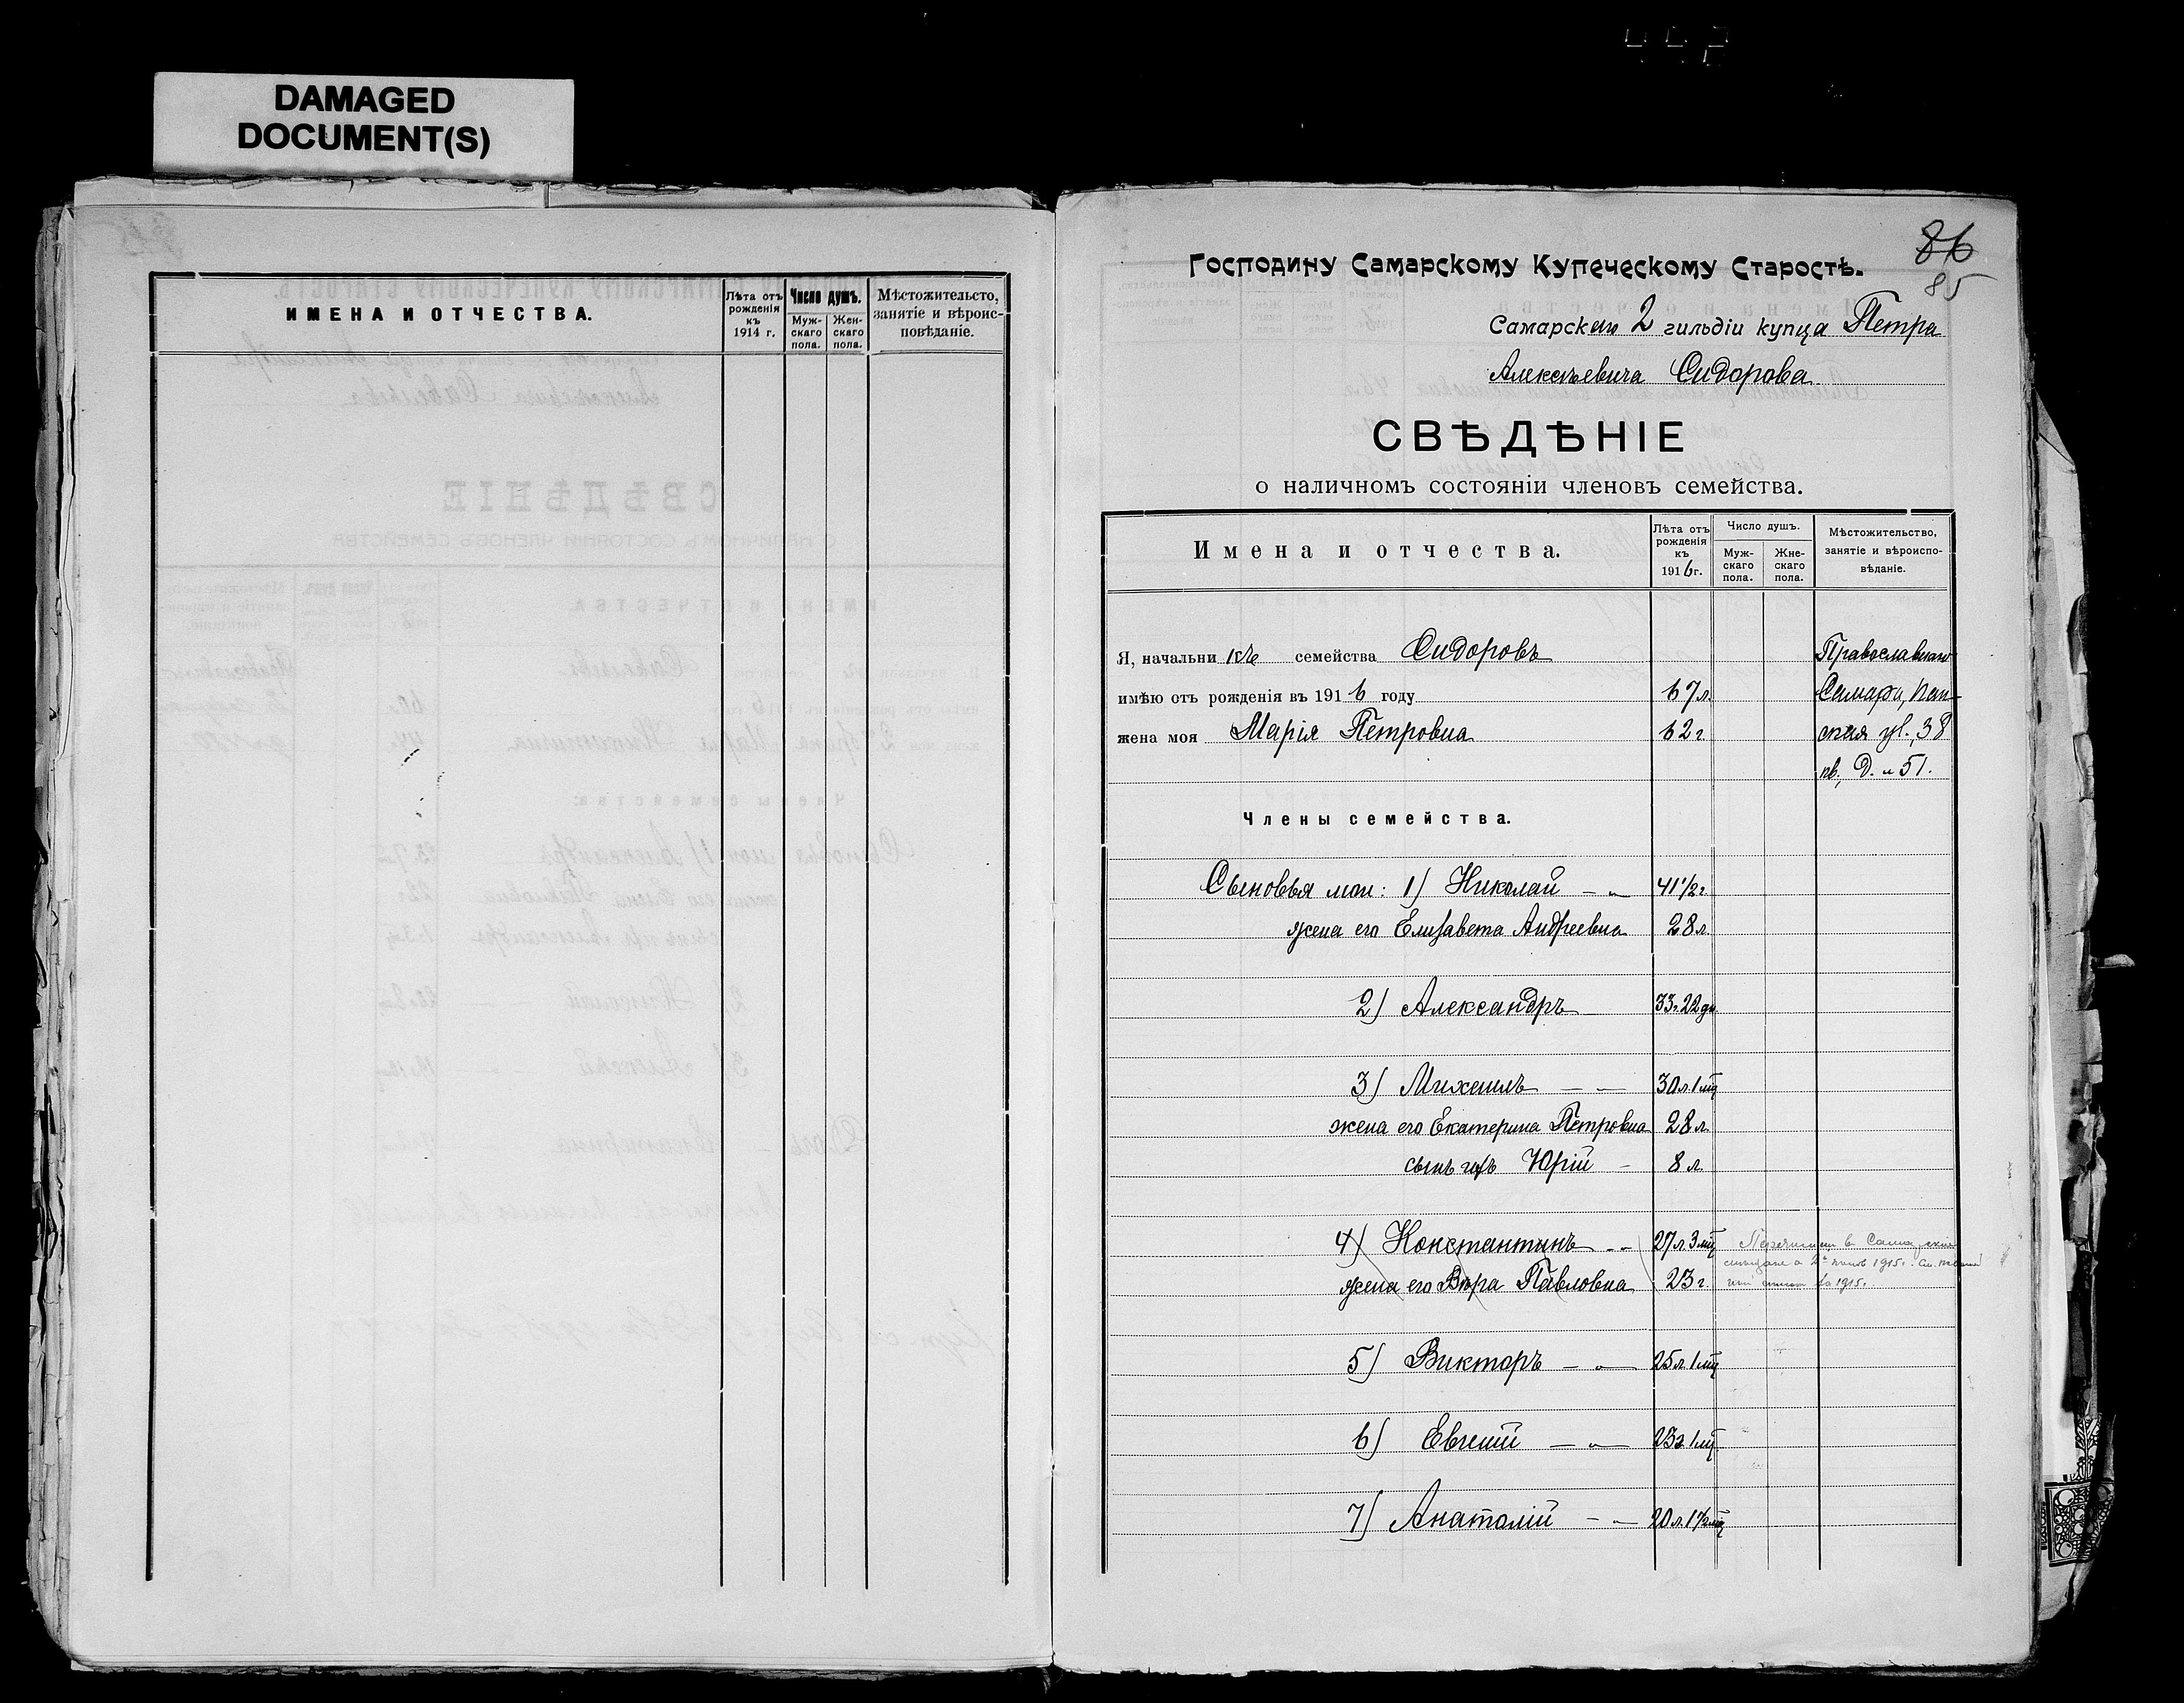 DAMAGED
DOCUMENT(S)
ИМЕНА И ОТЧЕСТВА.
Лѣта отъ рожденія къ 1914 г.
Число душъ.
Муж-скаго пола.
Жен-скаго пола.
Мѣстожительсто, занятіе и вѣроис-повѣданіе.
86
85
Господину Самарскому Купеческому Старостѣ.
Самарскаго 2 гильдіи купца Петра
Алексѣевича Сидорова
СВѢДѢНІЕ
о наличномъ состояніи членовъ семейства.
Имена и отчества.
Лѣта отъ рожденія къ 1916 г.
Число душъ.
Муж-скаго пола.
Жне-скаго пола.
Мѣстожительство, занятіе и вѣроиспо-вѣданіе.
Я, начальникъ семейства Сидоровъ Православнаго
имѣю отъ рожденія въ 1916 году 67 л. Самара, Пан-
жена моя Марія Петровна 62 г. ская ул., 38
кв., д. № 51.
Члены семейства.
Сыновья мои: 1) Николай — „ 41 1/2 г.
жена его Елизавета Андреевна 28 л.
2) Александръ 33 г. 22 дн.
3) Михаилъ — — 30 л. 1 мц
жена его Екатерина Петровна 28 л.
сынъ ихъ Юрій — 8 л.
4) Константинъ „ 27 л. 3 мц
жена его Вѣра Павловна 23 г.
1915 г.
1915 г.
5) Викторъ — „ — 25 л. 1 мц
6) Евгеній — „ — 23 г. 1 мц
7) Анатолій — „ — 20 л. 1 1/2 мц